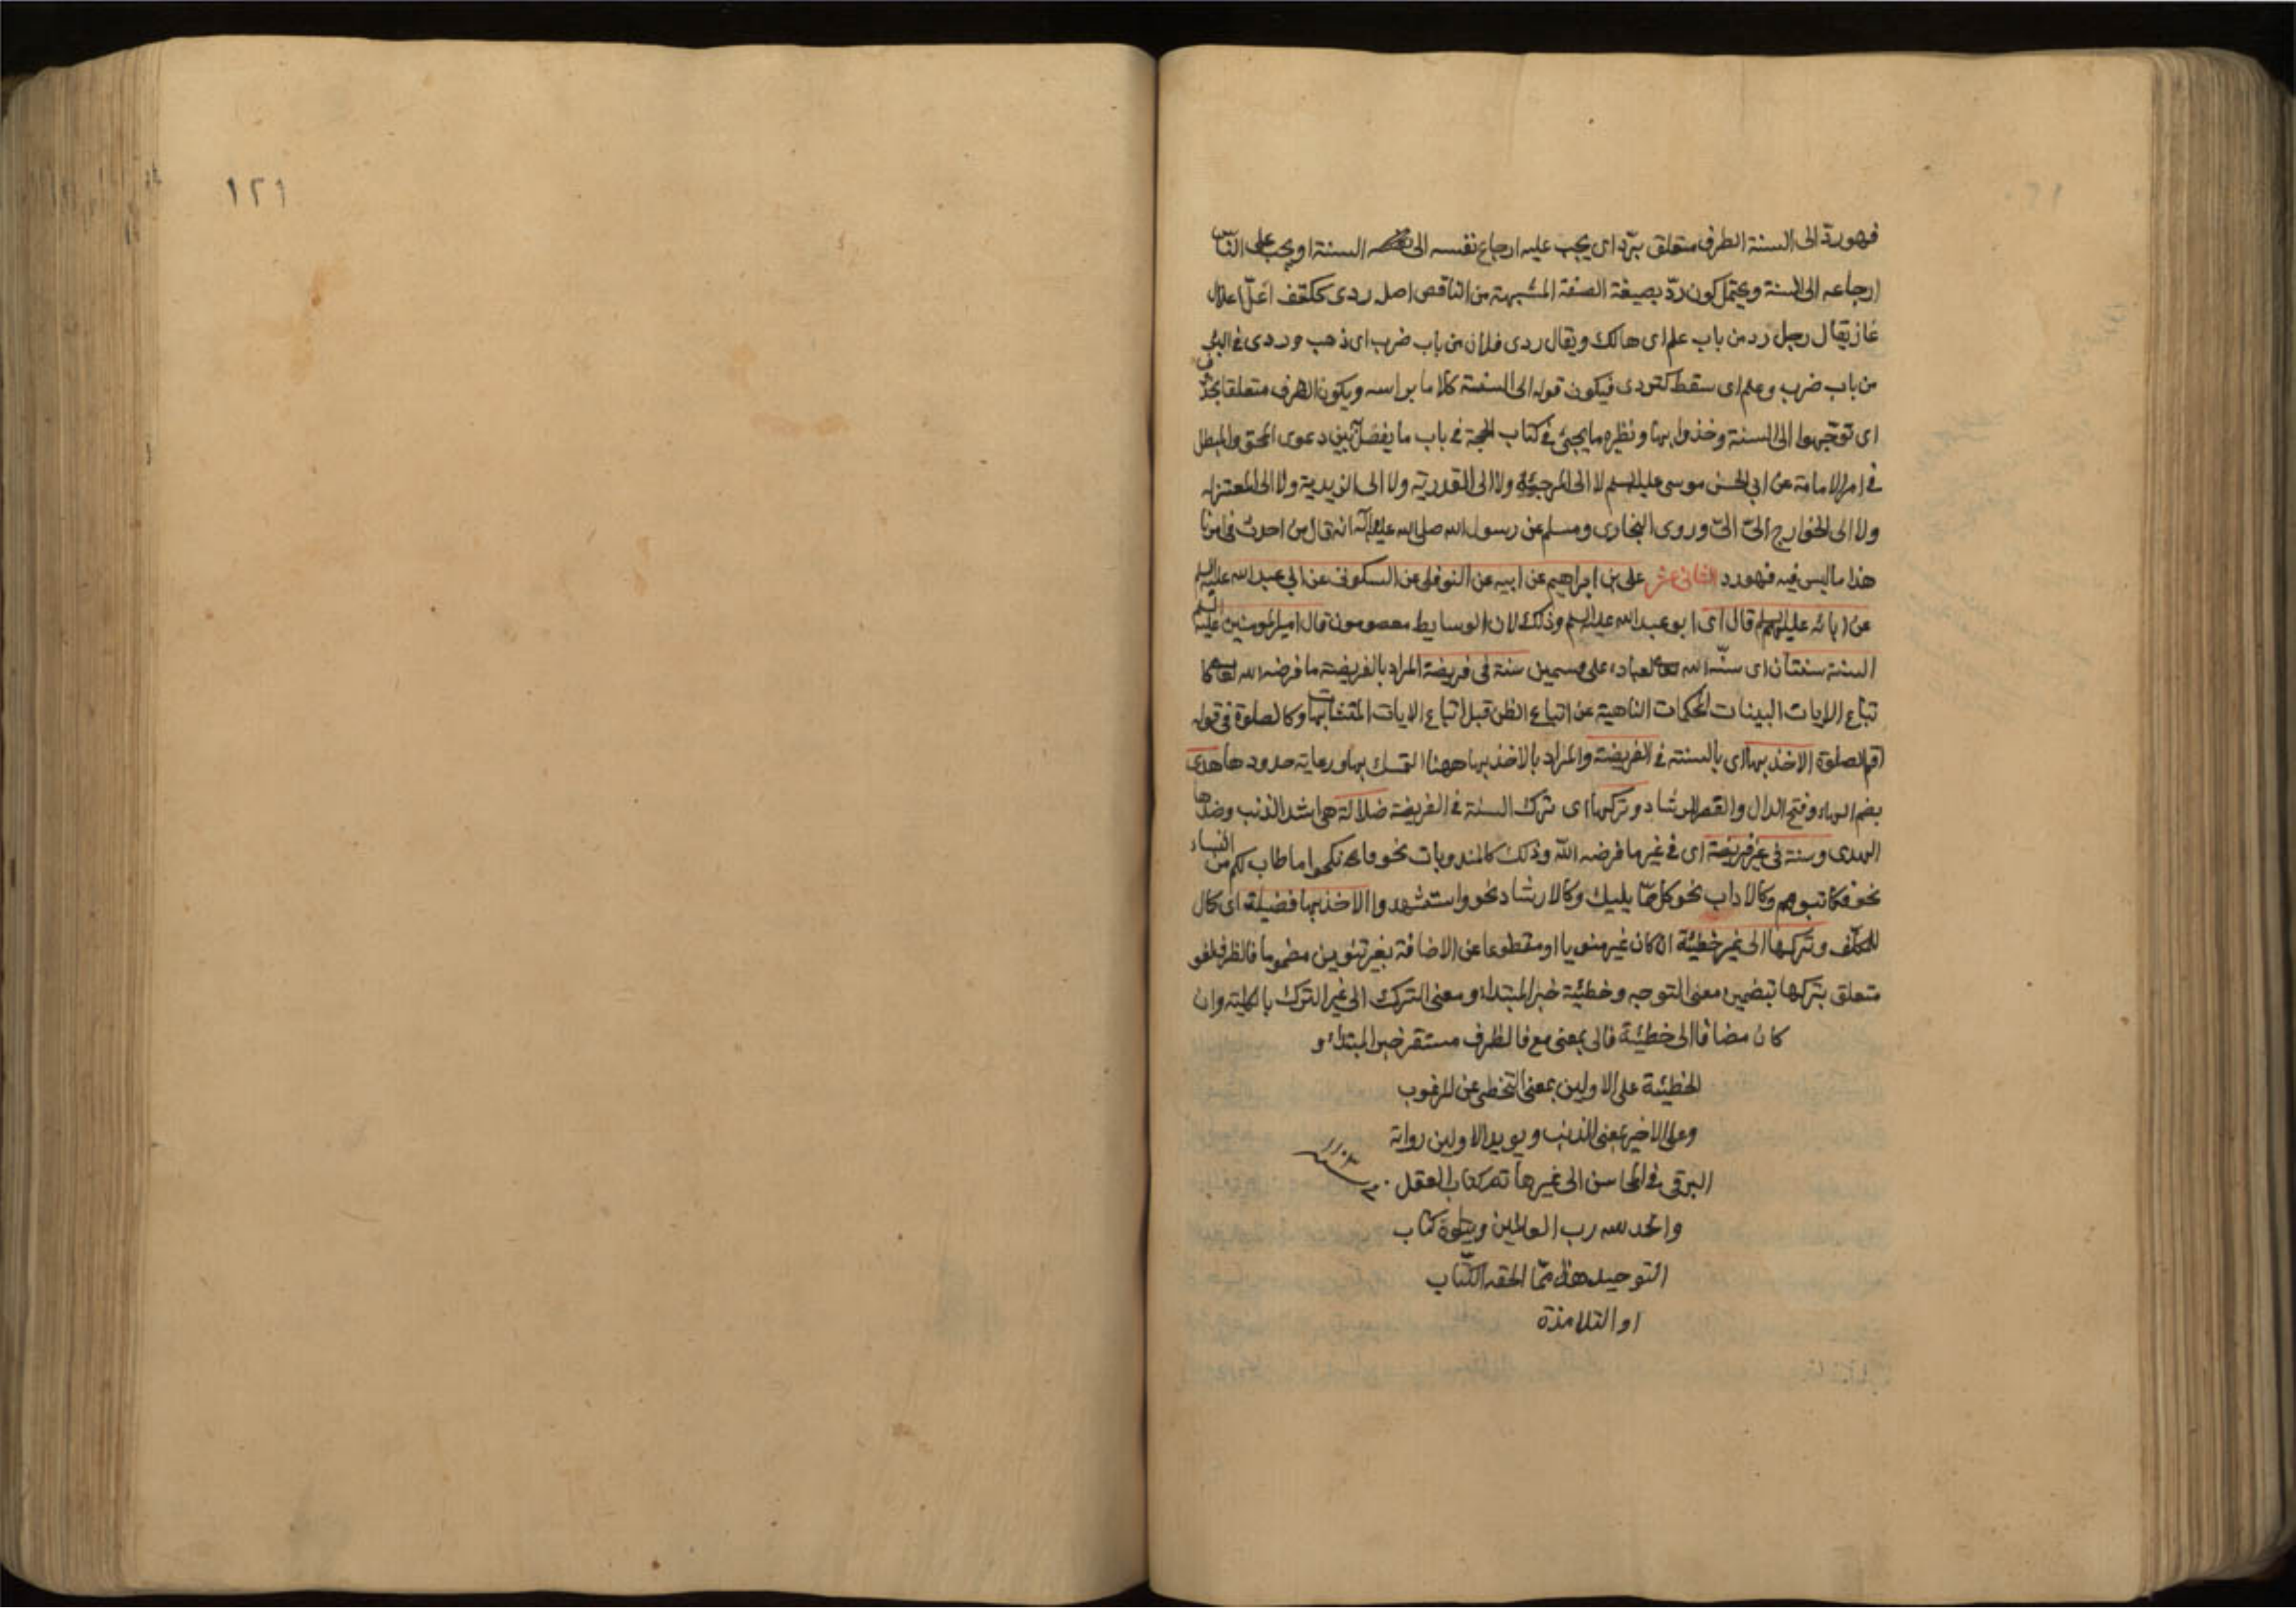 فهو ردّ الى السنة الظرف متعلق بردّ اى يجب عليه ارجاع نفسه الى السنة او يجب على الناس
ارجاعه الى السنة ويحتمل كون ردّ بصيغة الصفة المشبهة من الناقص اصل ردى ككتف اعلّ اعلال
غاز يقال رجل رد من باب علم اى هالك ويقال ردى فلان من باب ضرب اى ذهب وردى فى البئر
من باب ضرب وعلم اى سقط كتردى فيكون قوله الى السنة كلاما براسه ويكون الظرف متعلقا بمحذوف
اى توجّهوا الى السنة وخذوا بها ونظيره ما يجئ فى كتاب الحجة فى باب ما يفصل به بين دعوى المحق والمبطل
فى امر الامامة عن ابى الحسن موسى عليه السلم لا الى المرجئة ولا الى القدرية ولا الى الزيدية ولا الى المعتزله
ولا الى الخوارج الىّ الىّ وروى البخارى ومسلم عن رسول الله صلى الله عليه وآله انه قال من احدث فى امرنا
هذا ما ليس فيه فهو رد الثانى عشر على بن ابراهيم عن ابيه عن النوفلى عن السكونى عن ابى عبد الله عليه السلم
عن ابائه عليهم السلم قال اى ابو عبد الله عليه السلم وذلك لان الوسايط معصومون قال امير المومنين عليه السلم
السنة سنتان اى سنّة الله تعالى لعباده على قسمين سنة فى فريضة المراد بالفريضة ما فرضه الله تعالى كا
تباع الايات البينات المحكمات الناهية عن اتباع الظن قبل اتباع الايات المتشابهات وكالصلوة فى قوله
اقم الصلوة الاخذ بها اى بالسنة فى الفريضة والمراد بالاخذ بها ههنا التمسك بها ورعاية حدودها هدى
بضم الهاء وفتح الدال والقصر الرشاد وتركها اى ترك السنة فى الفريضة ضلالة هى اشد الذنب وضدها
الهدى وسنة فى غير فريضة اى فى غير ما فرضه الله وذلك كالمندوبات نحو فانكحوا ما طاب لكم من النساء
نحو فكاتبوهم وكالاداب نحو كل ممّا يليك وكالارشاد نحو واستشهدوا الاخذ بها فضيلة اى كمال
للمكلّف وتركها الى غير خطيئة ان كان غير منويا او مقطوعا عن الاضافة بغير تنوين مضموما فالظرف لغو
متعلق بتركها بتضمين معنى التوجه وخطيئة خبر المبتداء ومعنى الترك الى غير الترك بالكلية وان
كان مضافا الى خطيئة فالى بمعنى مع فالظرف مستقر خبر المبتداء و
الخطيئة على الاولين بمعنى التخطى عن المرغوب
وعلى الاخير بمعنى الذنب ويويد الاولين رواية
البرقى فى المحاسن الى غيرها تم كتاب العقل
والحمد لله رب العالمين ويتلوه كتاب
التوحيد هذا ممّا الحقه الكتّاب
او التلامذة
١٢١